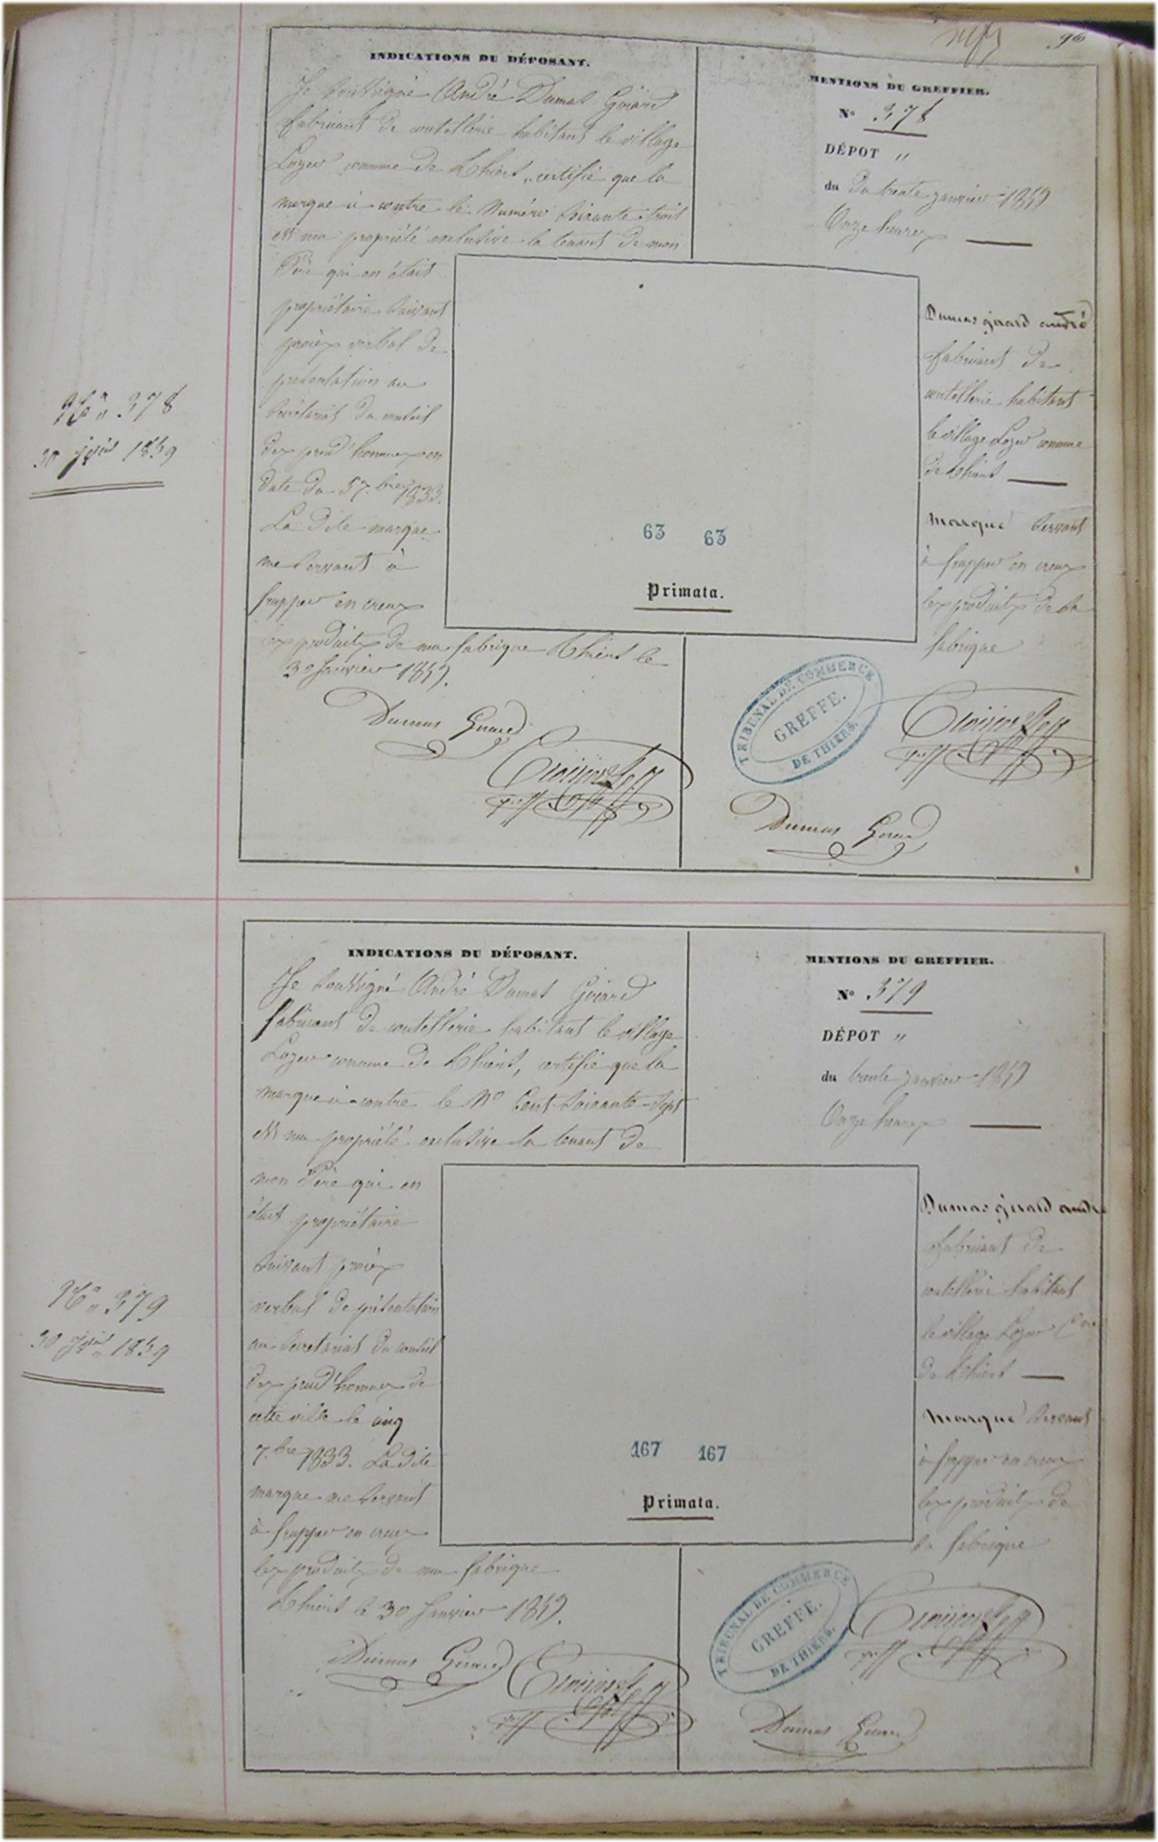 96
INDICATIONS DU DÉPOSANT.
Je soussigné André Dumas Girard
fabricant de coutellerie habitant le village
commune de Thiers, certifie que la
marque ci contre le Numéro soixante trois
est ma propriété exclusive la tenant de mon
Père qui en était
propriétaire suivant
procès verbal de
présentation au
Secrétariat du conseil
des prud'hommes en
date du 5 7.bre 1833.
La dite marque
me servant à
frapper en creux
les produits de ma fabrique Thiers le
30 Janvier 1859.
Dumas Girard
MENTIONS DU GREFFIER.
N° 378
DÉPOT "
du du trente janvier 1859
Onze heures
Dumas girard andré
fabricant de
coutellerie habitant
le village commune
de Thiers
Marque servant
à frapper en creux
les produits de sa
fabrique
63 63
Primata.
TRIBUNAL DE COMMERCE
GREFFE.
DE THIERS.
Dumas Girard
N° 378
30 jvier 1859
INDICATIONS DU DÉPOSANT.
Je soussigné André Dumas Girard
fabricant de coutellerie habitant le village
commune de Thiers, certifie que la
marque ci-contre le N° Cent soixante-sept
est ma propriété exclusive la tenant de
mon Père qui en
était propriétaire
suivant procès
verbal de présentation
au Secretariat du conseil
des prud'hommes de
cette ville le cinq
7.bre 1833. La dite
marque me servant
à frapper en creux
les produits de ma fabrique
Thiers le 30 Janvier 1859.
Dumas Girard
MENTIONS DU GREFFIER.
N° 379
DÉPOT "
du trente janvier 1859
Onze heures
Dumas girard andré
fabricant de
coutellerie habitant
le village
de Thiers
Marque servant
à frapper en creux
les produits de
sa fabrique
167 167
Primata.
TRIBUNAL DE COMMERCE
GREFFE.
DE THIERS.
Dumas Girard
N° 379
30 jvier 1859